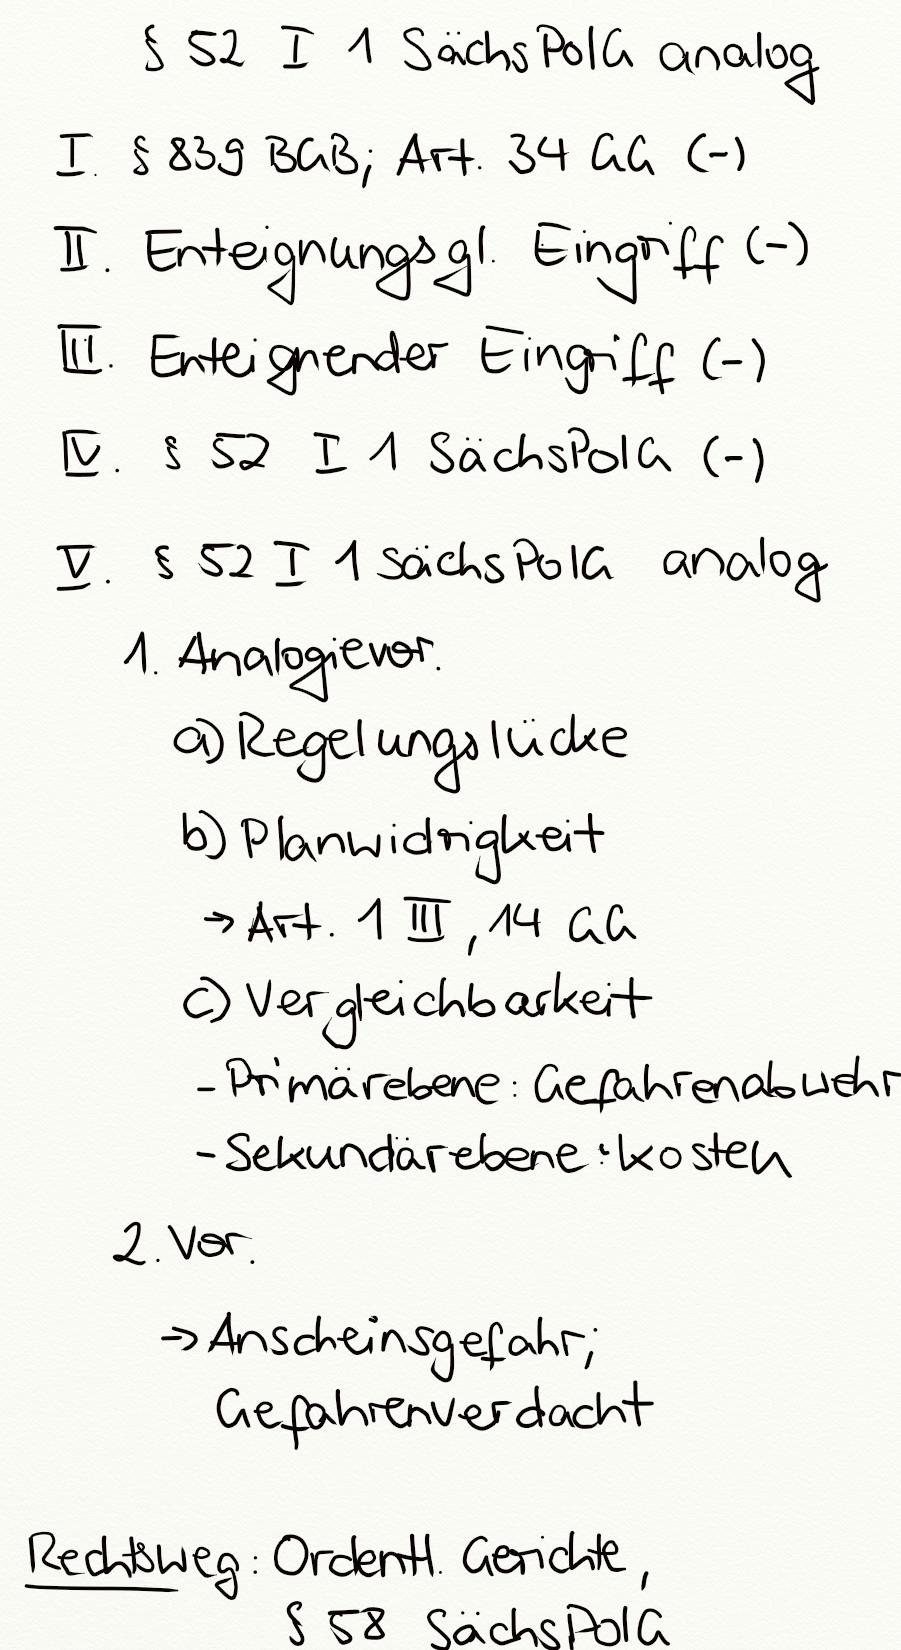 § 52 I 1 SächsPolG analog
I. § 839 BGB; Art. 34 GG (-)
II. Enteignungsgl. Eingriff (-)
III. Enteignender Eingriff (-)
IV. § 52 I 1 SächsPolG (-)
V. § 52 I 1 SächsPolG analog
1. Analogievor.
a) Regelungslücke
b) Planwidrigkeit
→ Art. 1 III, 14 GG
c) Vergleichbarkeit
- Primärebene: Gefahrenabwehr
- Sekundärebene: Kosten
2. Vor.
→ Anscheinsgefahr;
Gefahrenverdacht
Rechtsweg: Ordentl. Gerichte,
§ 58 SächsPolG